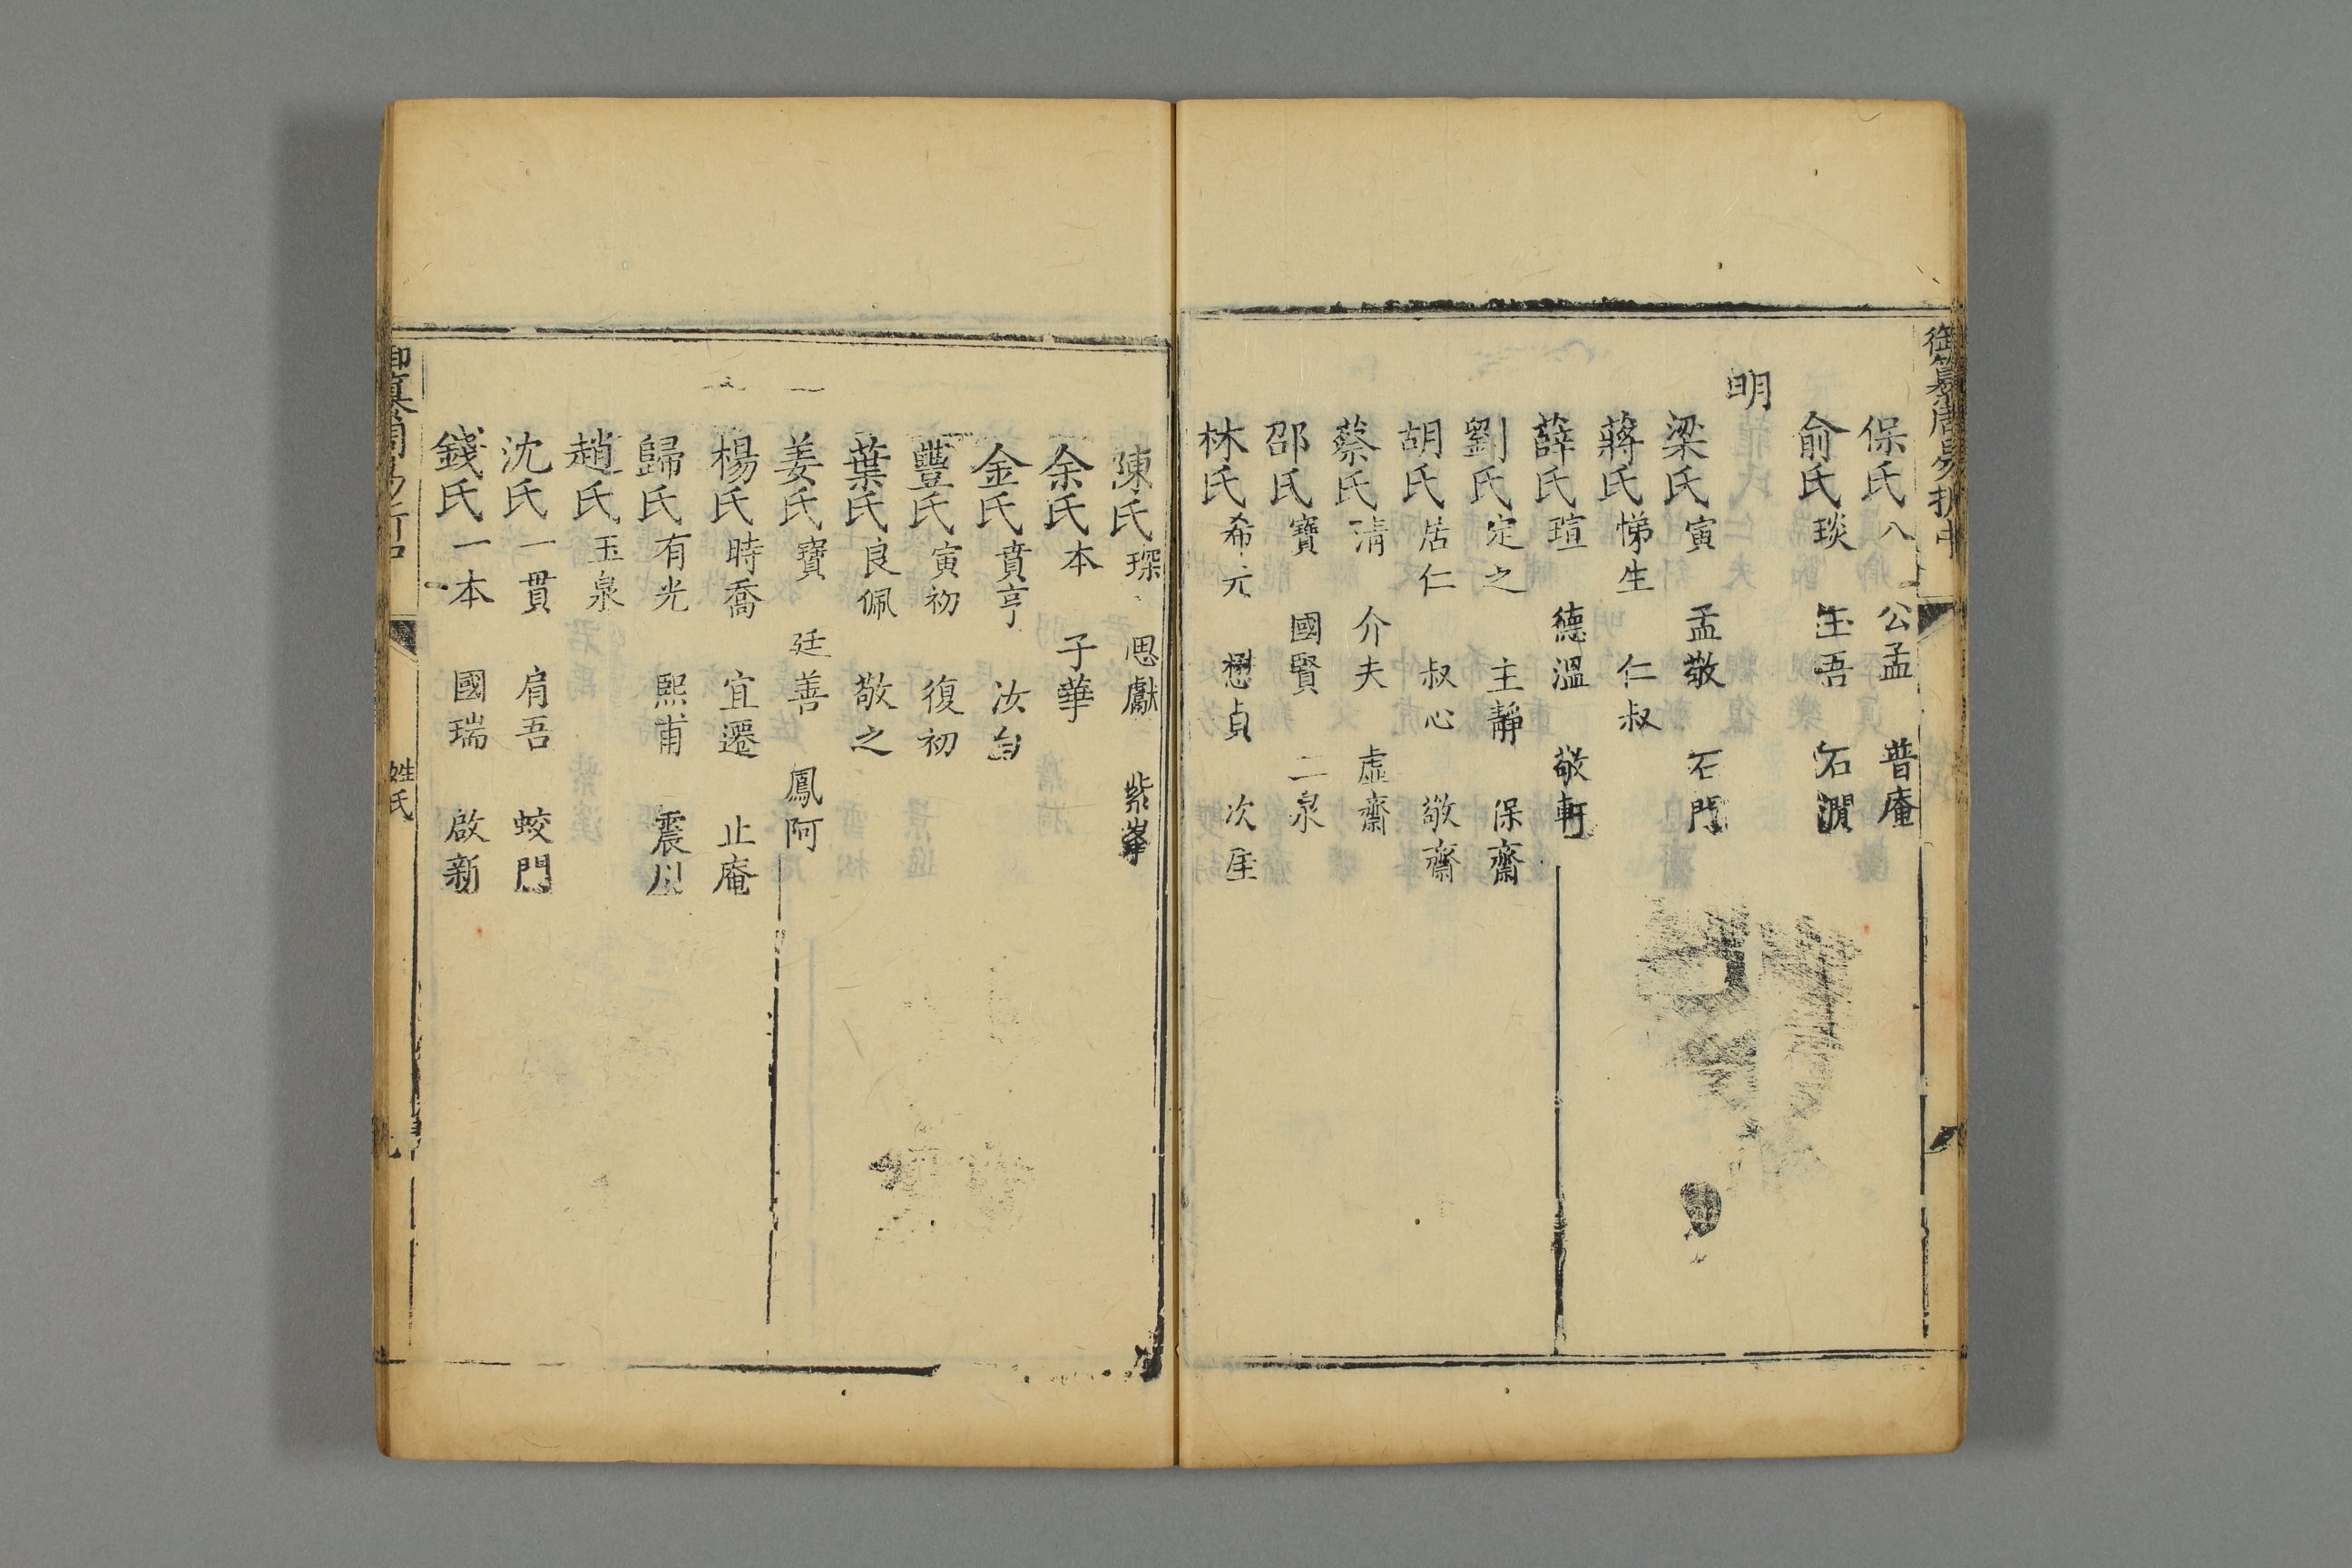 御纂周易折中
保氏 八 公孟 普庵
俞氏 琰 玉吾 石澗
明
梁氏 寅 孟敬 石門
蔣氏 悌生 仁叔
薛氏 瑄 德溫 敬軒
劉氏 定之 主靜 保齋
胡氏 居仁 叔心 敬齋
蔡氏 清 介夫 虛齋
邵氏 寶 國賢 二泉
林氏 希元 懋貞 次崖
陳氏 琛 思獻 紫峯
余氏 本 子華
金氏 賁亨 汝白
豐氏 寅初 復初
葉氏 良佩 敬之
姜氏 寶 廷善 鳳阿
楊氏 時喬 宜遷 止庵
歸氏 有光 熙甫 震川
趙氏 玉泉
沈氏 一貫 肩吾 蛟門
錢氏 一本 國瑞 啟新
御纂周易折中 姓氏